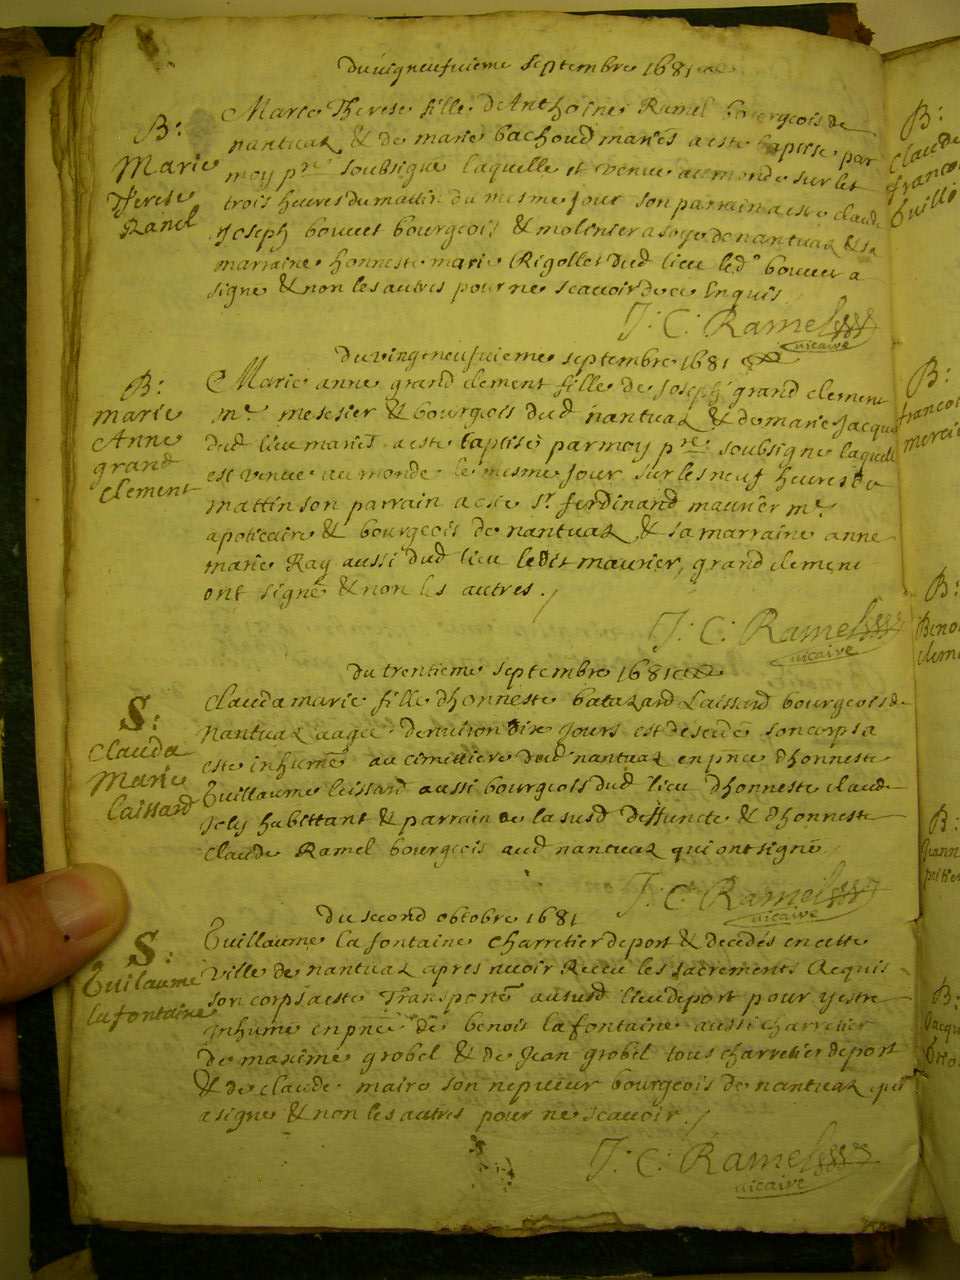 Du vigneufuieme septembre 1681
B:
Marie
Therese
Ramel
Marie Therese fille d'Anthoine Ramel bourgeois de
nantuaz & de marie bachoud mariés a esté baptisé par
moy pre soubsigne laquelle est venue au monde sur les
trois heures du mattin du mesme jour son parrain a esté claude
Joseph bouvet bourgeois & molinier a soye de nantuaz & sa
marraine honneste marie Rigollet dud lieu led bouvet a
signe & non les autres pour ne scavoir de ce Enquis
J: C: Ramel
vicaire
Du vingneufuieme septembre 1681
B:
marie
Anne
grand
clement
Marie anne grand clement fille de Joseph grand clement
me mesesier & bourgeois dud nantuaz & de marie Jacque
dud lieu mariés a esté baptisé par moy pre soubsigne laquelle
est venue au monde le mesme jour sur les neuf heures du
mattin son parrain a esté sr ferdinand maurier me
apoticaire & bourgeois de nantuaz & sa marraine anne
marie Ray aussi dud lieu ledit maurier, grand clement
ont signé & non les autres.
J: C: Ramel
vicaire
du trentieme septembre 1681
S:
Clauda
Marie
laissard
Clauda marie fille d'honneste batazard Laissard bourgeois de
Nantuaz aagée denuiron dix jours est desedé son corps a
esté inhumé au cimittiere dud nantuaz en pnce d'honneste
Guillaume leissard aussi bourgeois dud lieu d'honneste claude
Joly habittant & parrain de la susd deffuncte & d'honneste
claude Ramel bourgeois aud nantuaz qui ont signé
J: C: Ramel
vicaire
Du second octobre 1681
S:
Guilaume
la fontaine
Guillaume la fontaine charretier de port & decedés en cette
ville de nantuaz apres avoir Receu les sacrements Requis
son corps a esté Transporté au susd lieu de port pour y estre
inhumé en pnce de benoit la fontaine aussi charretier
de maxime grobel & de Jean grobel tous charretier de port
& de claude maire son nepueur bourgeois de nantuaz qui
a signe & non les autres pour ne scavoir.
J: C: Ramel
vicaire
B:
claude
B:
B:
B:
B: